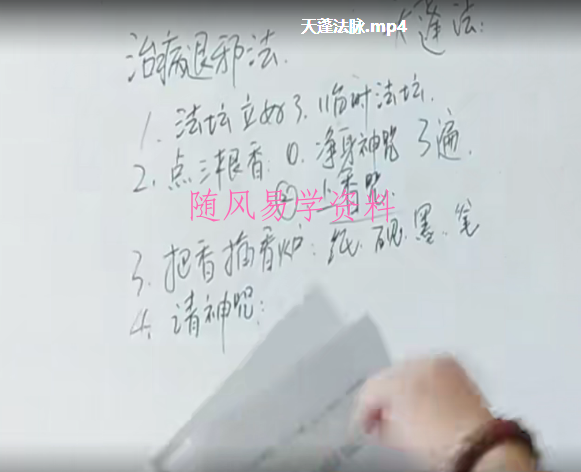 天蓬法脉.mp4
蓬法:
治病退邪法.
1. 法坛立好了. 临时法坛.
2. 点三根香: ①. 净身神咒 3遍.
② 上香咒.
随风易学资料
3. 把香插香炉: 纸. 砚. 墨. 笔
4. 请神咒: